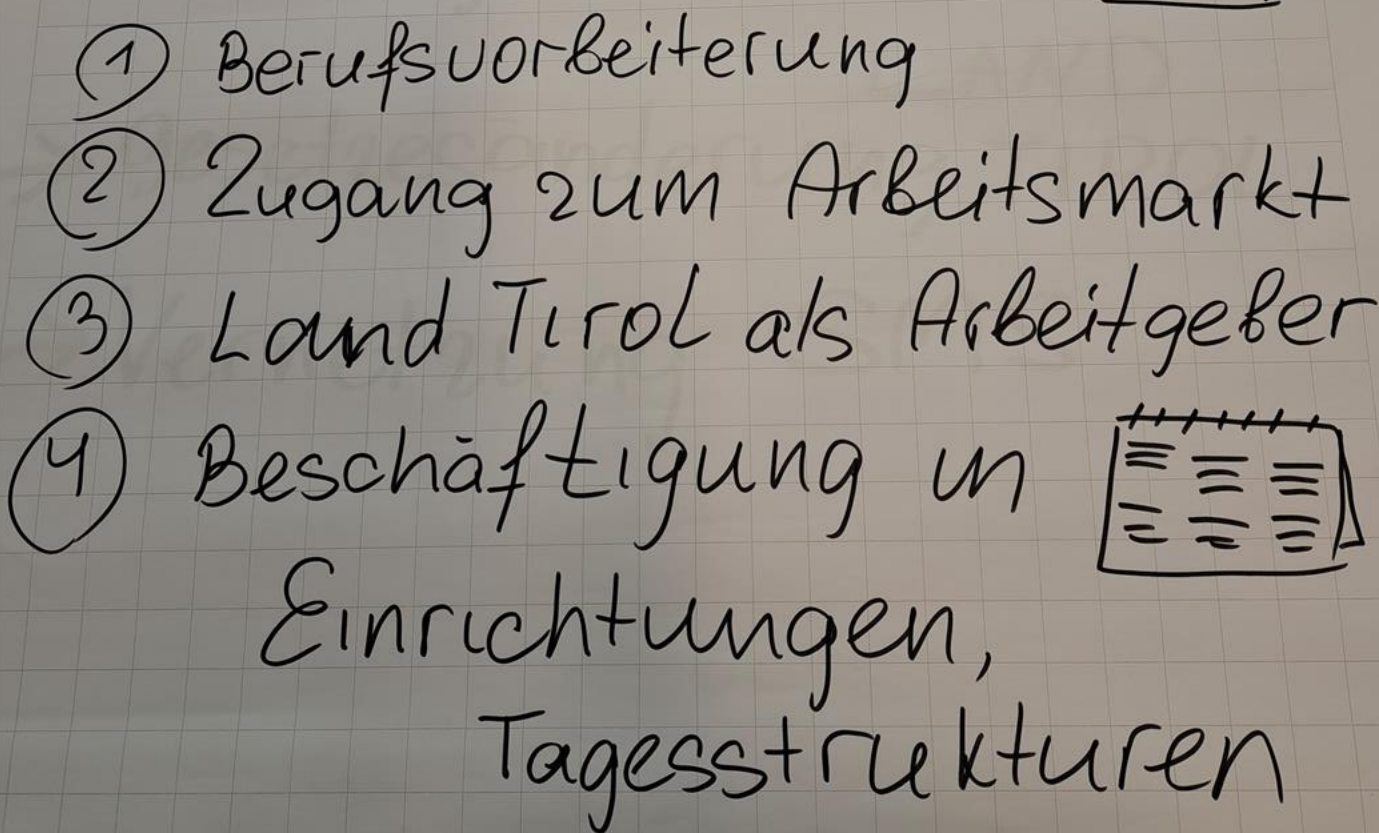 1 Berufsvorbeiterung
2 Zugang zum Arbeitsmarkt
3 Land Tirol als Arbeitgeber
4 Beschäftigung in
Einrichtungen,
Tagesstrukturen